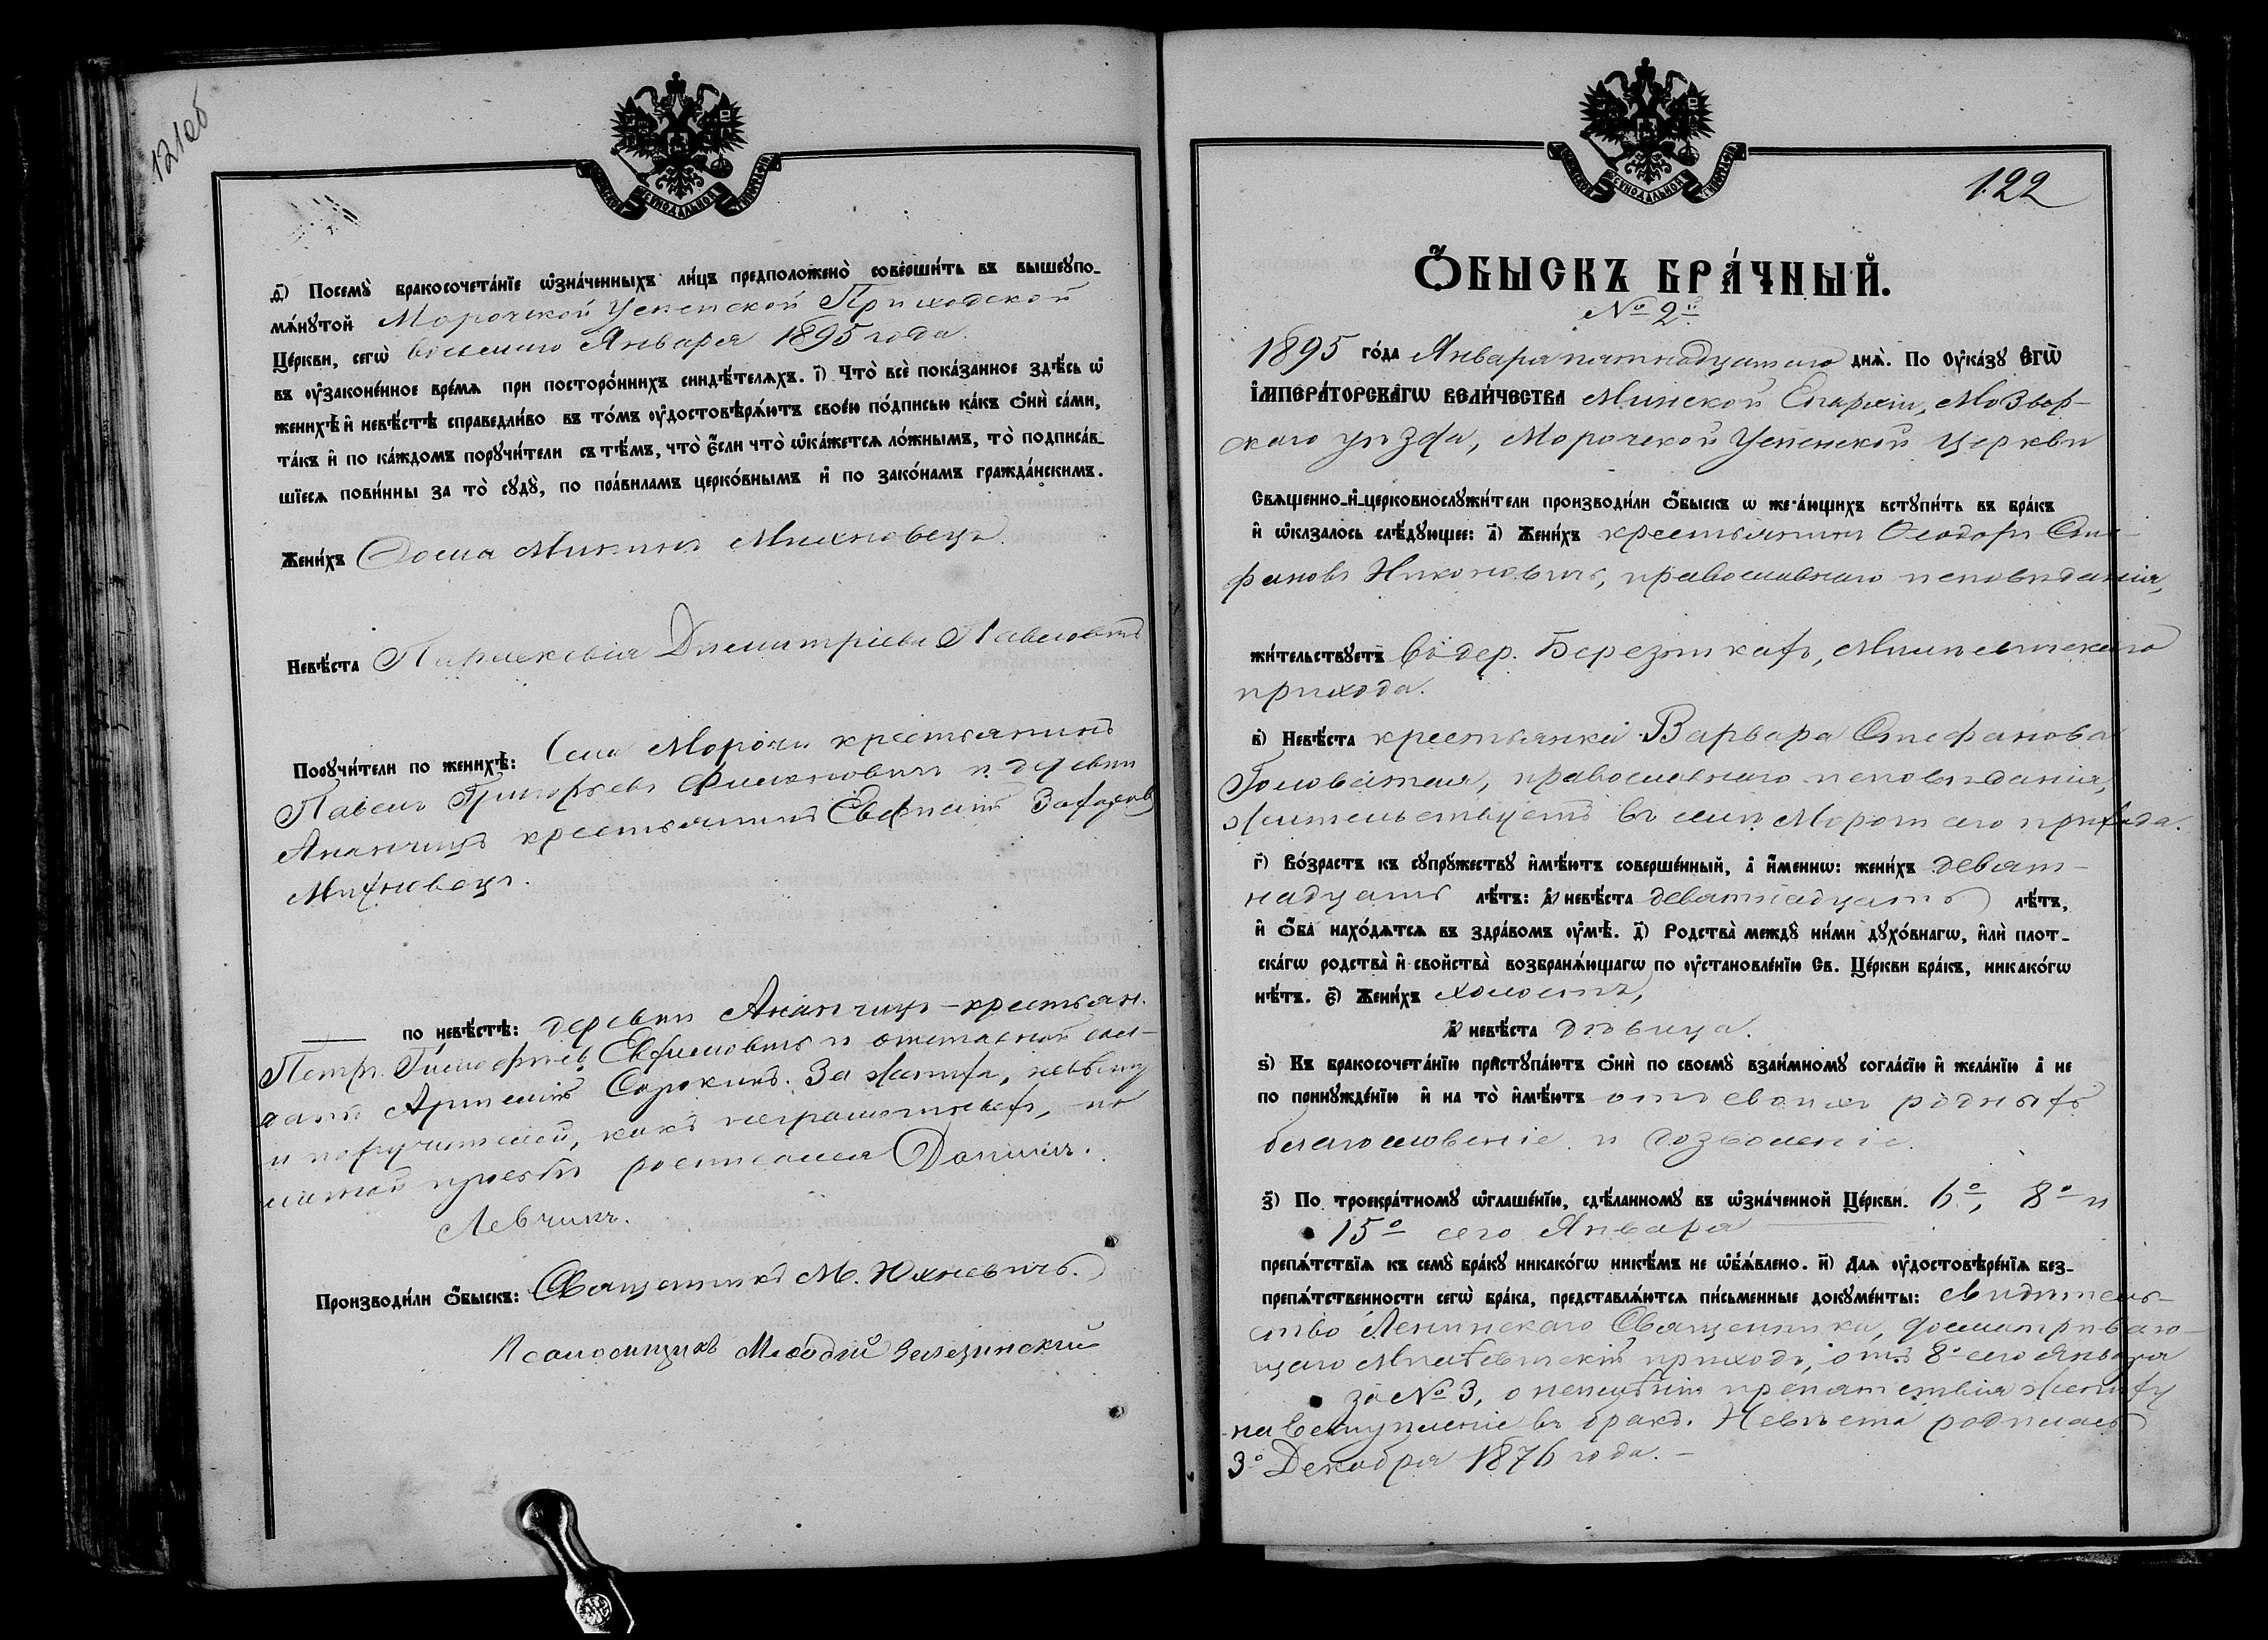 121об
СѴНОДАЛЬНОЙ
ѳ҃) Посемꙋ̀ бракосочета́нїе ѡ҆зна́ченныхъ ли́цъ предположено̀ соверши́ть въ вышеꙋпо-
мѧ́нꙋтой Морочской Успенской Приходской
Це́ркви, сегѡ̀ восьмого Января 1895 года.
въ оу҆законе́нное вре́мѧ при посторо́ннихъ свидѣ́телѧхъ. і҃) Что̀ всѐ пока́занное здѣ́сь ѡ҆
женихѣ̀ и҆ невѣ́стѣ справедли́во въ то́мъ оу҆достовѣрѧ́ютъ свое́ю по́дписью ка́къ ѻ҆нѝ са́ми,
та́къ и҆ по ка́ждомъ порꙋчи́тели съ тѣ́мъ, что̀ є҆́сли что̀ ѡ҆ка́жетсѧ ло́жнымъ, то̀ подписа́в-
шїесѧ пови́нны за то̀ сꙋдꙋ̀, по пра́виламъ церко́внымъ и҆ по зако́намъ гражда́нскимъ.
Жени́хъ Ѳома Микитъ Михновецъ.
Невѣ́ста Параскевія Димитріева Павловичъ
Порꙋчи́тели по женихѣ̀: Села Морочи крестьянинъ
Павелъ Григорьевъ Филиповичъ и деревни
Ананчицъ крестьянинъ Евфимій Захаровъ
Михновецъ.
по невѣ́стѣ: деревни Ананчицъ - крестьян.
Петръ Тимофѣевъ Евфимовичъ и отставной сол-
датъ Артемій Сорокинъ. За жениха, невѣсту
и поручителей, какъ неграмотныхъ, по
личной просьбѣ росписался Даніилъ
Левчикъ.
Производи́ли ѻ҆́быскъ: Священникъ М. Юхневичъ.
Псаломщикъ Меѳодій Зелезинскій
122
СѴНОДАЛЬНОЙ
Ѻ҆́БЫСКЪ БРА́ЧНЫЙ.
№ 2й
1895 го́да Января пятнадцатаго днѧ̀. По Оу҆ка́зꙋ Є҆ГѠ̀
І҆МПЕРА́ТОРСКАГѠ ВЕЛИ́ЧЕСТВА Минской Епархіи, Мозыр-
скаго уѣзда, Морочской Успенской церкви
Свѧще́нно-и҆-церковнослꙋжи́тели производи́ли ѻ҆́быскъ ѡ же҆а́ющихъ встꙋпи́ть въ бра́къ
и҆ ѡ҆казалось слѣ́дꙋющее: а҃) Жени́хъ крестьянинъ Ѳеодоръ Сте-
фановъ Никоновичъ, православнаго исповѣданія,
жи́тельствꙋетъ въ дер. Березникахъ, Милевичскаго
прихода.
в҃) Невѣ́ста крестьянка Варвара Стефанова
Головатая, православнаго исповѣданія,
жительствуетъ въ селѣ Морочѣ сего прихода.
г҃) Во́зрастъ къ сꙋпрꙋ́жествꙋ и҆мѣ́ютъ соверше́нный, а҆ и҆́меннѡ: жени́хъ девят-
надцать лѣ́тъ: а҆ невѣ́ста девятнадцать лѣ́тъ,
и҆ ѻ҆́ба нахо́дѧтсѧ въ здра́вомъ оу҆мѣ̀. д҃) Родства̀ междꙋ̀ ни́ми дꙋхо́внагѡ, и҆лѝ плот-
ска́гѡ родства̀ и҆ свойства̀ возбранѧ́ющагѡ по оу҆становле́нїю Св. Це́ркви бра́къ, никако́гѡ
нѣ́тъ. є҃) Жени́хъ холостъ,
а҆ невѣ́ста дѣвица.
ѕ҃) Къ бракосочета́нїю пристꙋпа́ютъ ѻ҆нѝ по своемꙋ̀ взаи́мномꙋ согла́сїю и҆ жела́нїю а҆ не
по принꙋжде́нїю и҆ на то̀ и҆мѣ́ютъ отъ своихъ родныхъ
благословеніе и дозволеніе.
з҃) По троекра́тномꙋ ѡ҆глаше́нїю, сдѣ́ланномꙋ въ ѡ҆зна́ченной Це́ркви. 6º, 8º и
15º сего Января
препѧ́тствїѧ къ семꙋ̀ бра́кꙋ никако́гѡ никѣ́мъ не ѡ҆б̾ѧ́влено. и҃) Длѧ оу҆достовѣре́нїѧ без-
препѧ́тственности сегѡ̀ бра́ка, представлѧ́ютсѧ пи́сьменные докꙋме́нты: свидѣтель-
ство Ленинскаго Священника, досматриваю-
щаго Милевичскій приходъ, отъ 8º сего Января
за № 3, о неимѣніи препятствія жениху
на вступленіе въ бракъ. Невѣста родилась
3º Декабря 1876 года. -